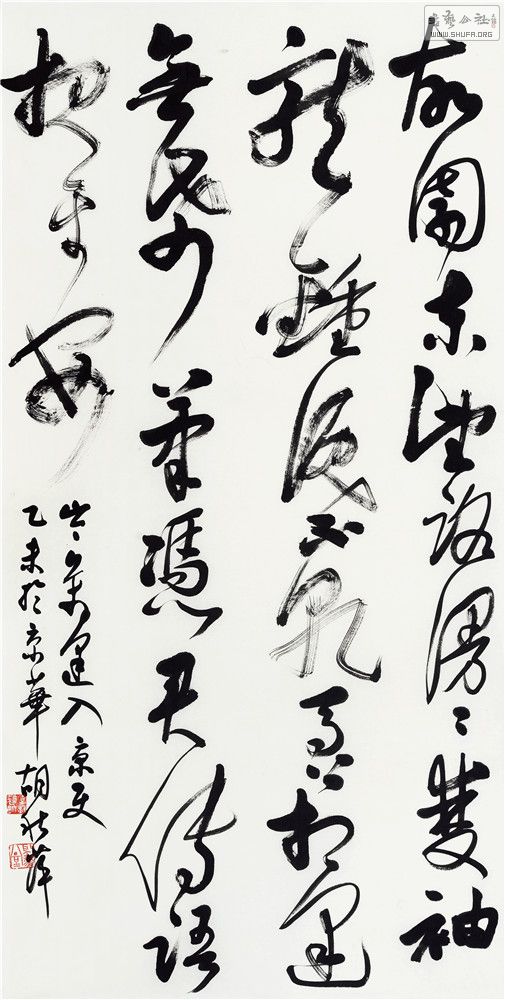 故園东望路漫〻雙袖
龍鍾淚不乾馬上相逢
無帋筆憑君傳語
报平安
岑參逢入京使
乙未於京華胡秋萍
書藝公社
WWW.SHUFA.ORG